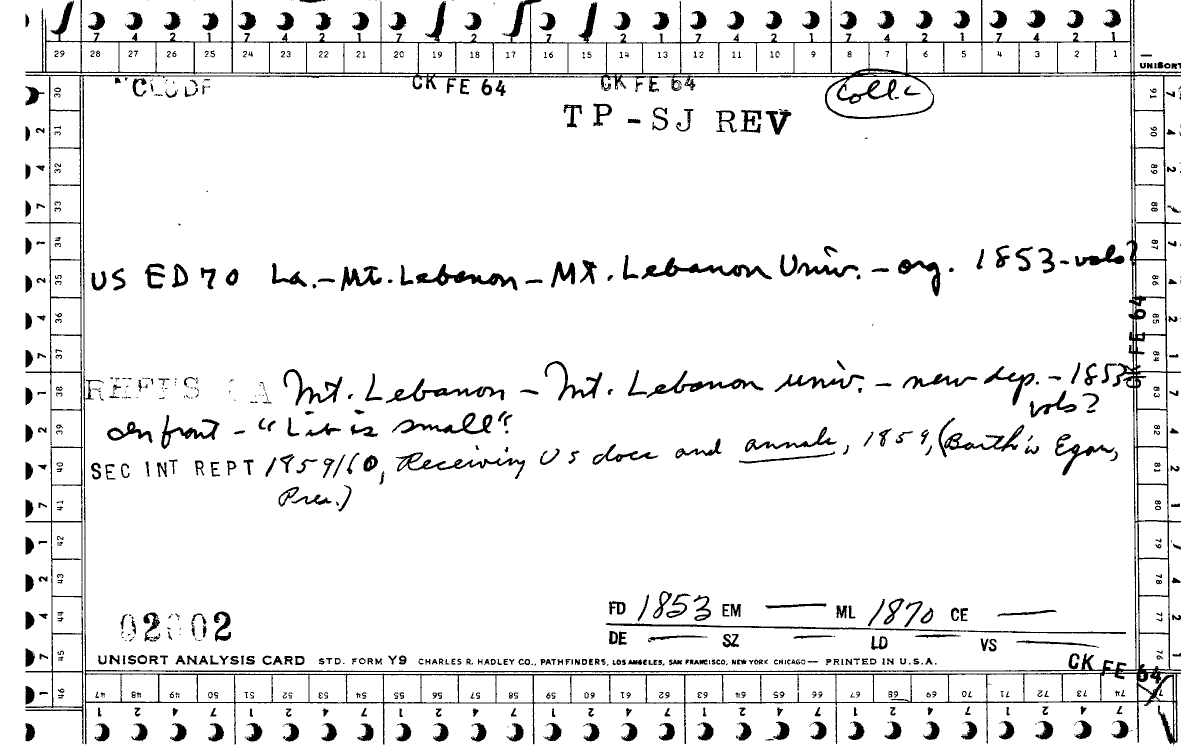 7 4 2 1 7 4 2 1 7 4 2 1 7 4 2 1 7 4 2 1 7 4 2 1 7 4 2 1
29 28 27 26 25 24 23 22 21 20 19 18 17 16 15 14 13 12 11 10 9 8 7 6 5 4 3 2 1
UNISORT
CK FE 64 CK FE 64 Coll
TP - SJ REV
US ED 70 La. - Mt. Lebanon - Mt. Lebanon Univ. - org. 1853 - vols?
Mt. Lebanon - Mt. Lebanon univ. - new dep. - 1853
vols?
On front - "Lib is small"
SEC INT REPT 1859/60, Receiving US docs and annals, 1859, (Barth'w Egan,
Pres.)
FE 64
02002
FD 1853 EM — ML 1870 CE —
DE — SZ — LD — VS —
UNISORT ANALYSIS CARD STD. FORM Y9 CHARLES R. HADLEY CO., PATHFINDERS, LOS ANGELES, SAN FRANCISCO, NEW YORK CHICAGO — PRINTED IN U.S.A.
CK FE 64
30 31 32 33 34 35 36 37 38 39 40 41 42 43 44 45 46
91 90 89 88 87 86 85 84 83 82 81 80 79 78 77 76
47 48 49 50 51 52 53 54 55 56 57 58 59 60 61 62 63 64 65 66 67 68 69 70 71 72 73 74
1 2 4 7 1 2 4 7 1 2 4 7 1 2 4 7 1 2 4 7 1 2 4 7 1 2 4 7